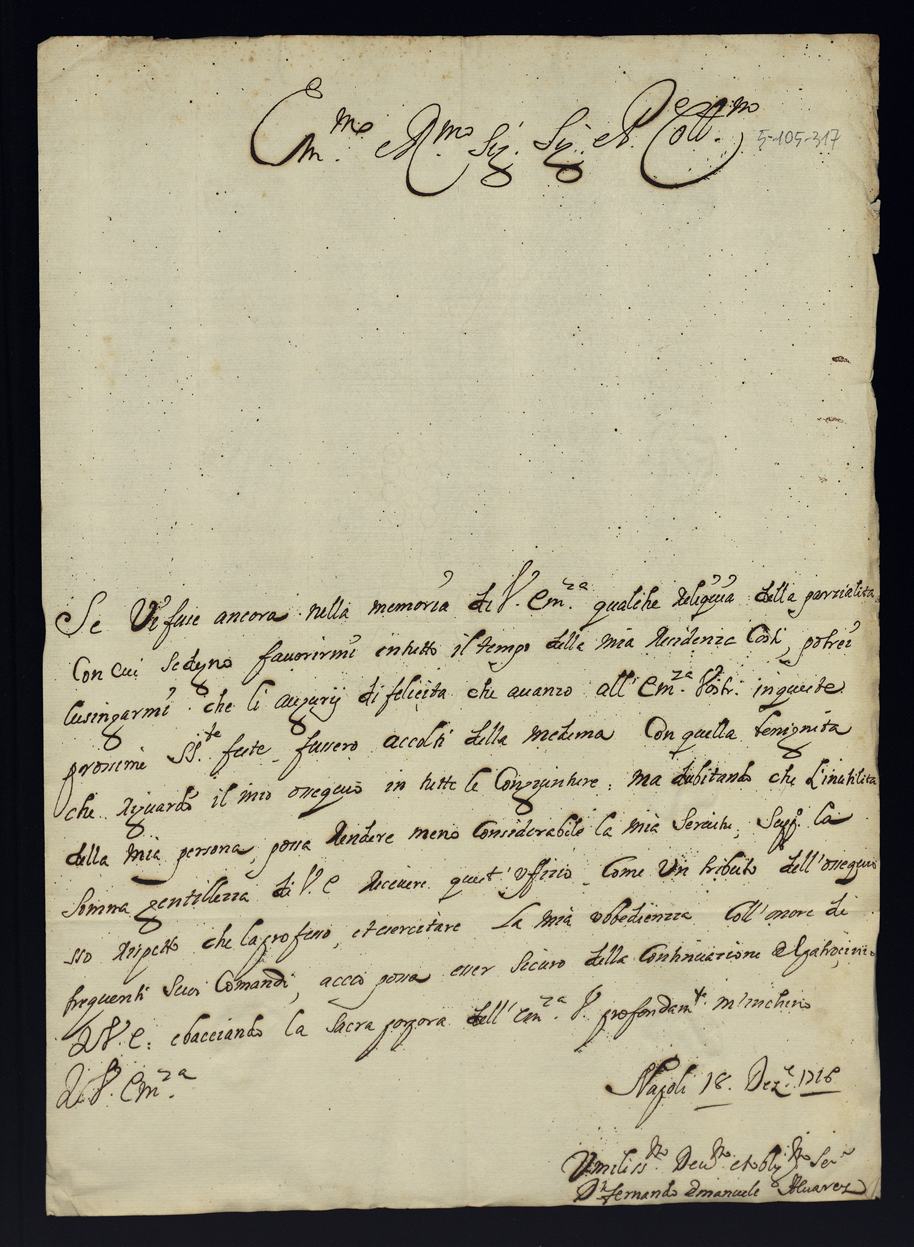 Em.mo e R.mo Sig. Sig. e P. Coll.mo
5-105-317
Se Vi fuse ancora nella memoria di V. Em.za qualche reliquia della parzialità
Con cui si degnò favorirmi in tutto il tempo della mia Residenza Costì, potrei
lusingarmi che li augurij di felicità che avanzo all'Em.za Vostr. in queste
prossime SS.te feste fussero accolti della medema Con quella benignità
che riguardò il mio ossequio in tutte le Congiunture: ma dubitando che L'inutilità
della mia persona, possa rendere meno Considerabile la mia Servitù; Sup. la
somma gentilezza di V. E. ricevere quest'Uffizio Come Un tributo dell'ossequio
sso rispetto che la professo, et esercitare La mia obbedienza Coll'onore di
frequenti Suoi Comandi, acciò possa esser Sicuro della Continuazione del patrocinio
di V. E: e bacciando la Sacra porpora dell'Em.za V. profondam.te m'inchino
Di V. Em.za
Napoli 18. Dez.e 1718
Umiliss.mo Dev.mo et obbl.mo Ser.e
D.n Fernando Emanuele Alvarez